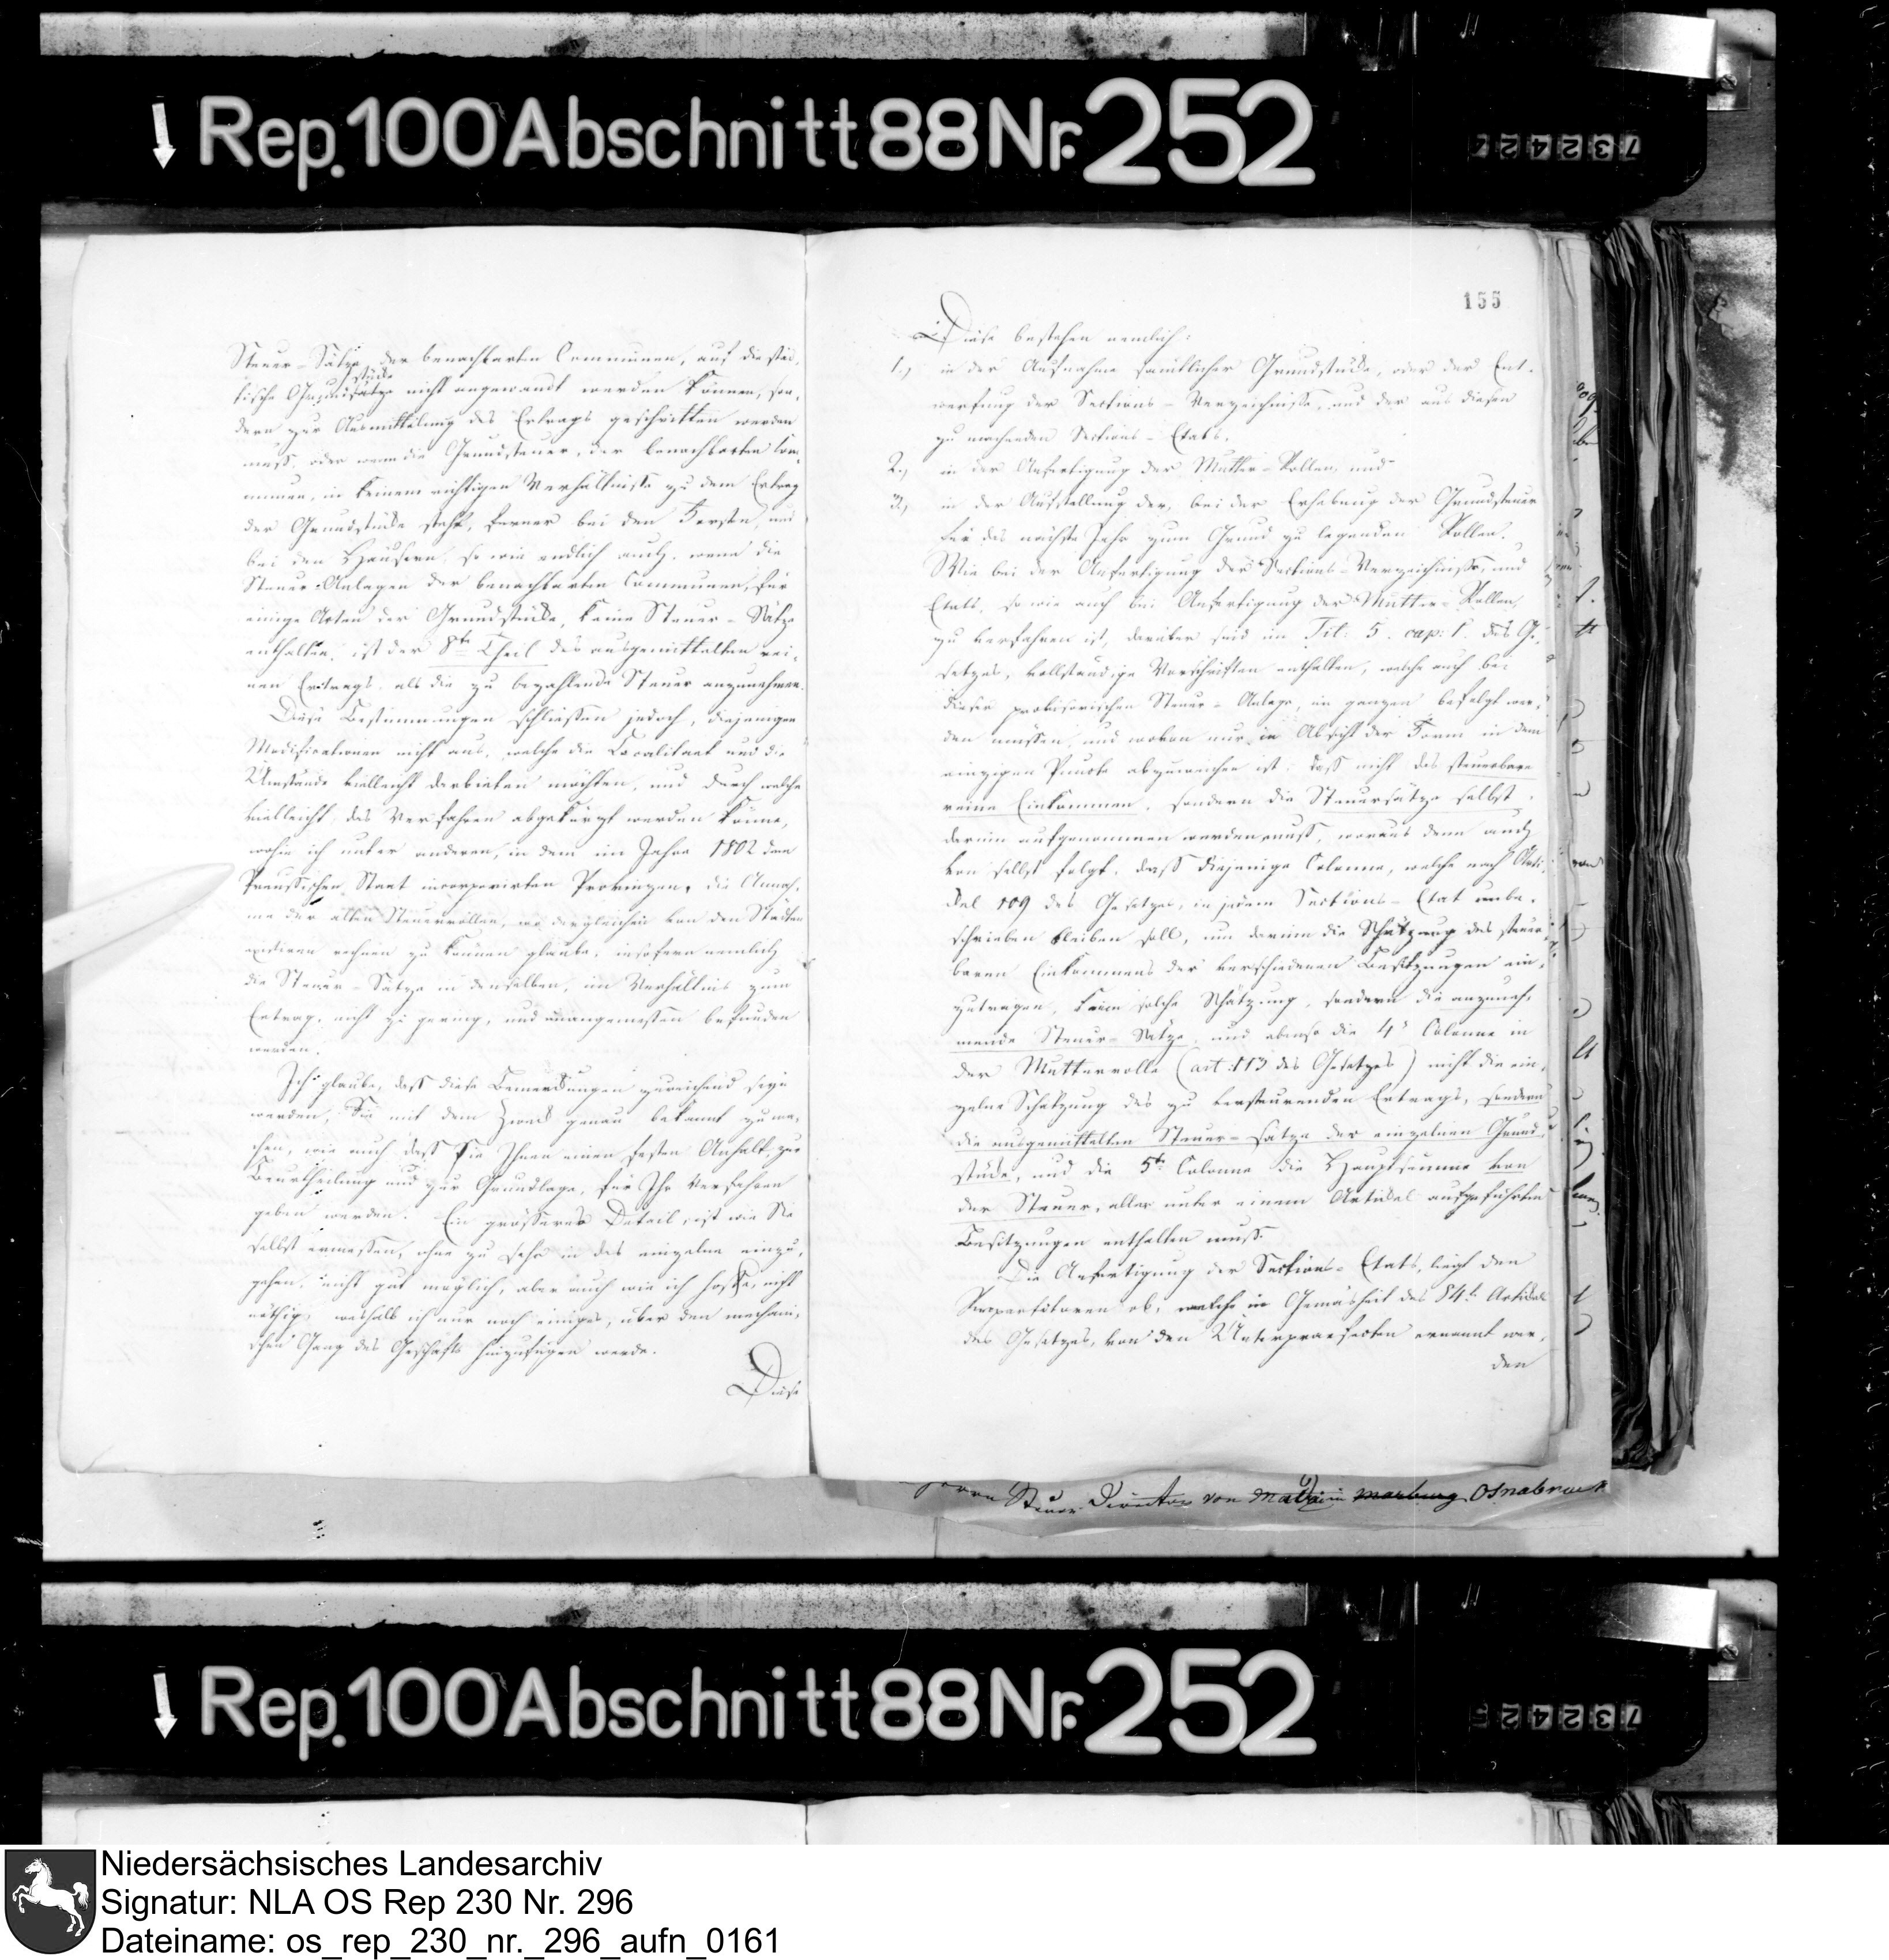 Rep. 100 Abschnitt 88 Nr. 252
732424
Steuer-Sätze der benachbarten Communen, auf die städ-
stücke
tische Grundsätze nicht angewandt werden können, son-
dern zur Ausmittelung des Ertrags geschritten werden
muss, oder wenn die Grundsteuer, der benachbarten Com-
munen, in keinem richtigen Verhältnisse zu dem Ertrag
der Grundstücke steht, ferner bei den Forsten, und
bei den Häusern, so wie endlich auch, wenn die
Steuer-Anlagen der benachbarten Communen, für
einige Arten der Grundstücke, keine Steuer-Sätze
enthalten, ist der 8te Theil des ausgemittelten rei-
nen Ertrags, als die zu bezahlende Steuer anzunehmen.
Diese Bestimmungen schliessen jedoch, diejenigen
Modificationen nicht aus, welche die Localitaet und die
Umstände vielleicht darbieten möchten, und durch welche
vielleicht das Verfahren abgekürzt werden könne,
wohin ich unter anderen, in dem im Jahre 1802 dem
Preussischen Staat incorporirten Provinzen, die Annah-
me der alten Steuerrollen, wo dergleichen von den Städten
existiren rechnen zu können glaube, insofern nemlich
die Steuer-Sätze in denselben, im Verhältnis zum
Ertrag, nicht zu gering, und unangemessen befunden
werden.
Ich glaube, dass diese Bemerkungen zureichend seyn
werden, Sie mit dem Zweck genau bekannt zu ma-
chen, wie auch dass sie Ihnen einen festen Anhalt zur
Beurtheilung und zur Grundlage, für Ihr Verfahren
geben werden. Ein grösseres Detail, ist wie Sie
selbst ermessen, ohne zu sehr in das einzelne einzu-
gehen, nicht gut möglich, aber auch wie ich hoffe, nicht
nöthig, weshalb ich nur noch einiges, über den mechani-
schen Gang des Geschäfts hinzufügen werde.
Diese
155
Diese bestehen nemlich:
1.) in der Aufnahme sämtlicher Grundstücke, oder der Ent-
werfung der Sections-Verzeichnisse, und der aus diesen
zu machenden Sections-Etats.
2.) in der Anfertigung der Mutter-Rollen, und
3.) in der Aufstellung der, bei der Erhebung der Grundsteuer
für das nächste Jahr zum Grund zu legenden Rollen.
Wie bei der Anfertigung der Sections-Verzeichnisse, und
Etats, so wie auch bei Anfertigung der Mutter-Rollen,
zu verfahren ist, darüber sind im Tit: 5. cap: 1. des Ge-
setzes, vollständige Vorschriften enthalten, welche auch bei
dieser provisorischen Steuer-Anlage, im ganzen befolgt wer-
den müssen, und wovon nur in Absicht der Form in dem
einzigen Puncte abzuweichen ist: dass nicht das steuerbare
reine Einkommen, sondern die Steuersätze selbst,
darin aufgenommen werden muss, woraus denn auch
von selbst folgt, dass diejenige Colonne, welche nach Arti-
kel 109 des Gesetzes, in jedem Sections-Etat unbe-
schrieben bleiben soll, um darin die Schätzung des steuer-
baren Einkommens der verschiedenen Besitzungen ein-
zutragen, keine solche Schätzung, sondern die anzuneh-
mende Steuer-Sätze, und ebenso die 4te Colonne in
der Mutterrolle (art: 113 des Gesetzes) nicht die ein-
zelne Schatzung des zu versteurenden Ertrags, sondern
die ausgemittelten Steuer-Sätze der einzelnen Grund-
stücke, und die 5te Colonne die Hauptsumme von
der Steuer, aller unter einem Artickel aufgeführten
Besitzungen enthalten muss.
Die Anfertigung der Sections-Etats, liegt den
Repartitoren ob, welche in Gemäsheit des 84t Artikels
des Gesetzes, von den Unterpraefecten ernannt wer-
den
Steuer Director von Marburg Osnabrück
Rep. 100 Abschnitt 88 Nr. 252
732425
Niedersächsisches Landesarchiv
Signatur: NLA OS Rep 230 Nr. 296
Dateiname: os_rep_230_nr._296_aufn_0161